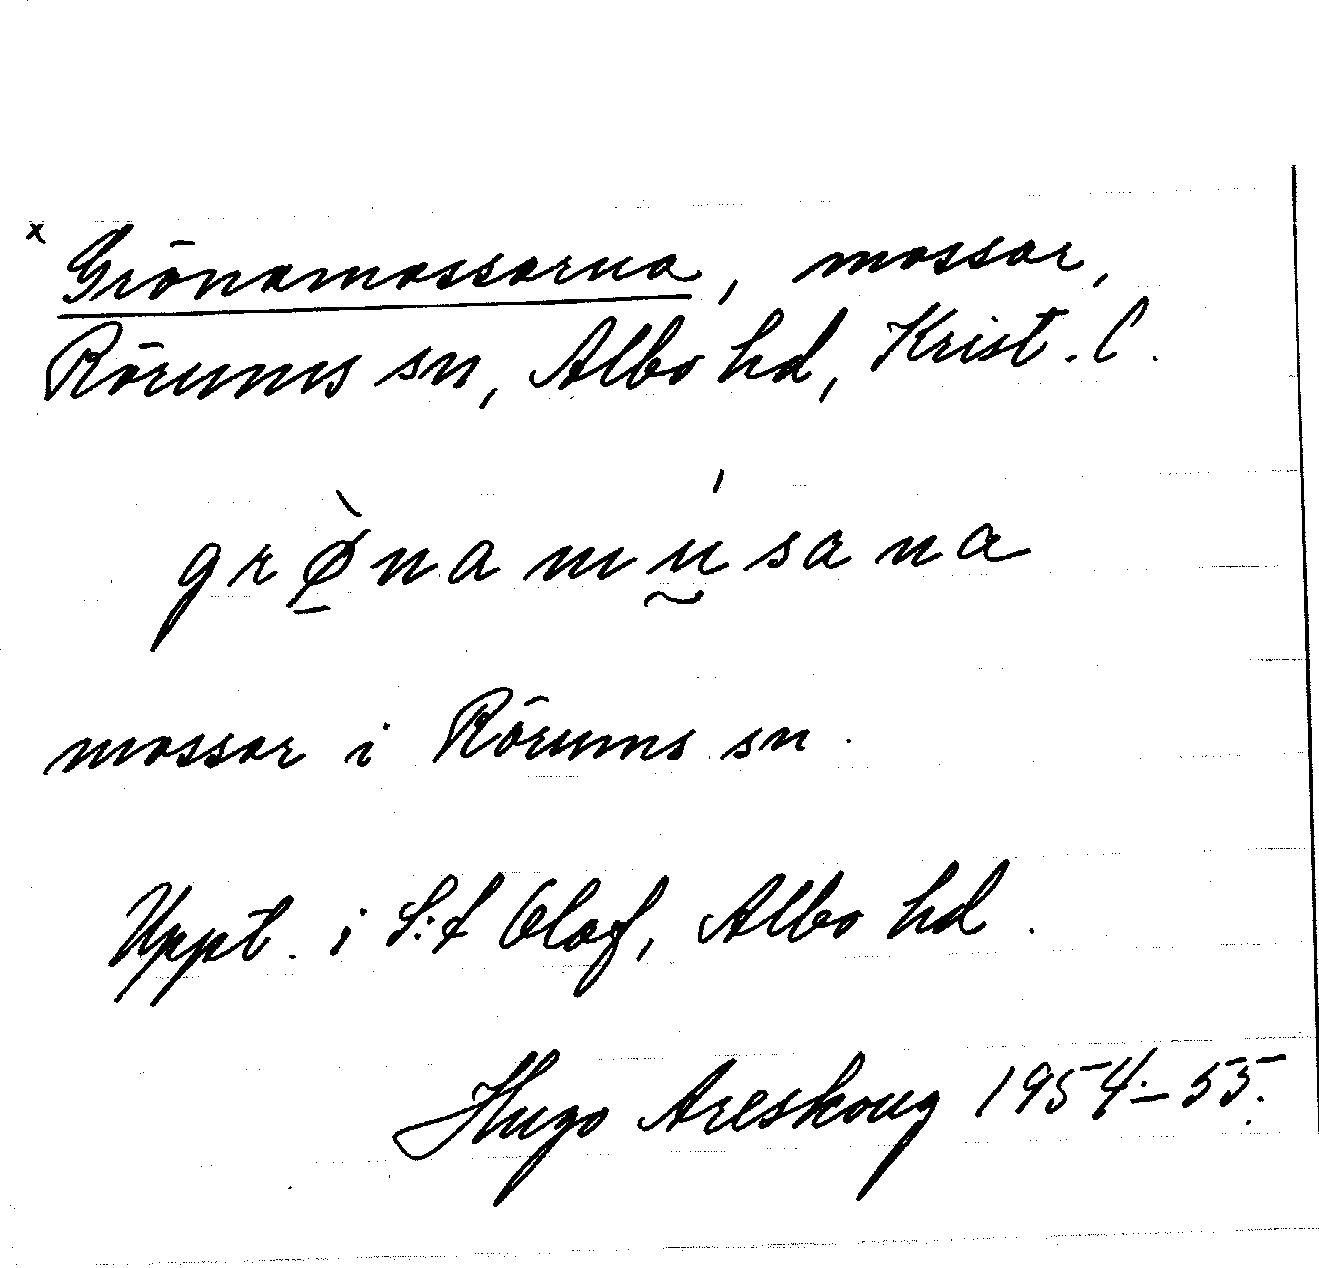 x Grönamossarna, mossar,
Rörums sn, Albo hd, Krist. l.
grø̱̀namṵ́sana
mossar i Rörums sn.
Uppt. i S:t Olof, Albo hd.
Hugo Areskoug 1954–55.